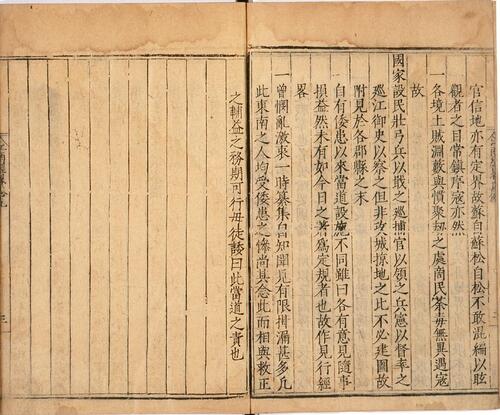 官信地亦有定界故蘇自蘇松自松不敢混編以眩
觀者之目常鎮序寇亦然
一各境土賊淵藪與慣聚刼之處商民荼毒無異遇寇
故
國家設民壯弓兵以戢之巡捕官以領之兵憲以督率之
巡江御史以察之但非攻城掠地之比不必建圖故
附見於各郡縣之末
自有倭患以來當道設施不同雖曰各有意見隨事
損益然未有如今日之著爲定規者也故作見行經
畧
一曾憫亂激衷一時纂集自知聞見有限掛漏甚多凡
此東南之人均受倭患之慘尚其念此而相與救正
之輔益之務期可行毋徒談曰此當道之責也